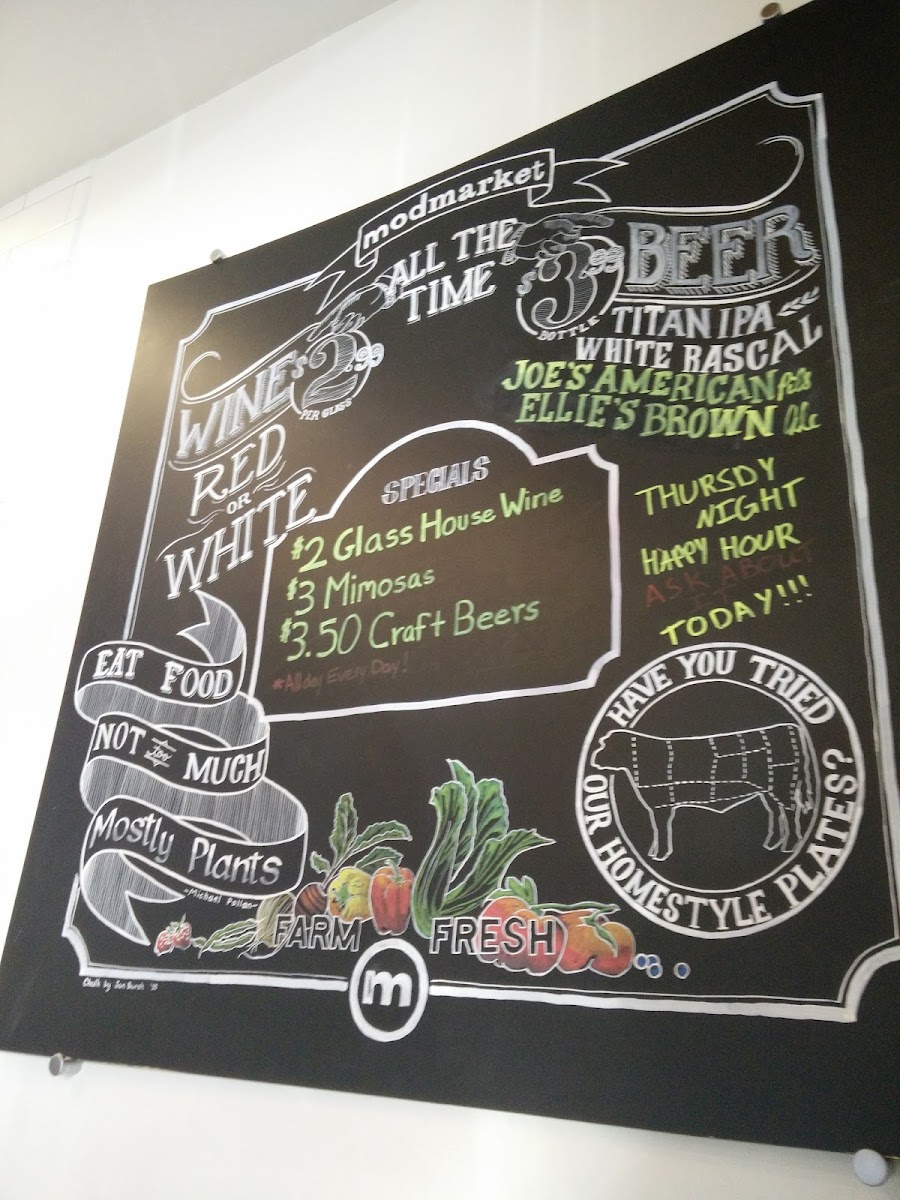 modmarket
ALL THE
TIME
WINE'S
2.99
PER GLASS
RED
OR
WHITE
$3.99
BOTTLE
BEER
TITAN IPA
WHITE RASCAL
JOE'S AMERICAN Pils
ELLIE'S BROWN Ale
SPECIALS
$2 Glass House Wine
$3 Mimosas
$3.50 Craft Beers
*All day Every Day!
THURSDY
NIGHT
HAPPY HOUR
ASK ABOUT
IT
TODAY!!!
EAT FOOD
NOT too MUCH
Mostly Plants
-Michael Pollan-
HAVE YOU TRIED
OUR HOMESTYLE PLATES?
FARM FRESH
m
Chalk by